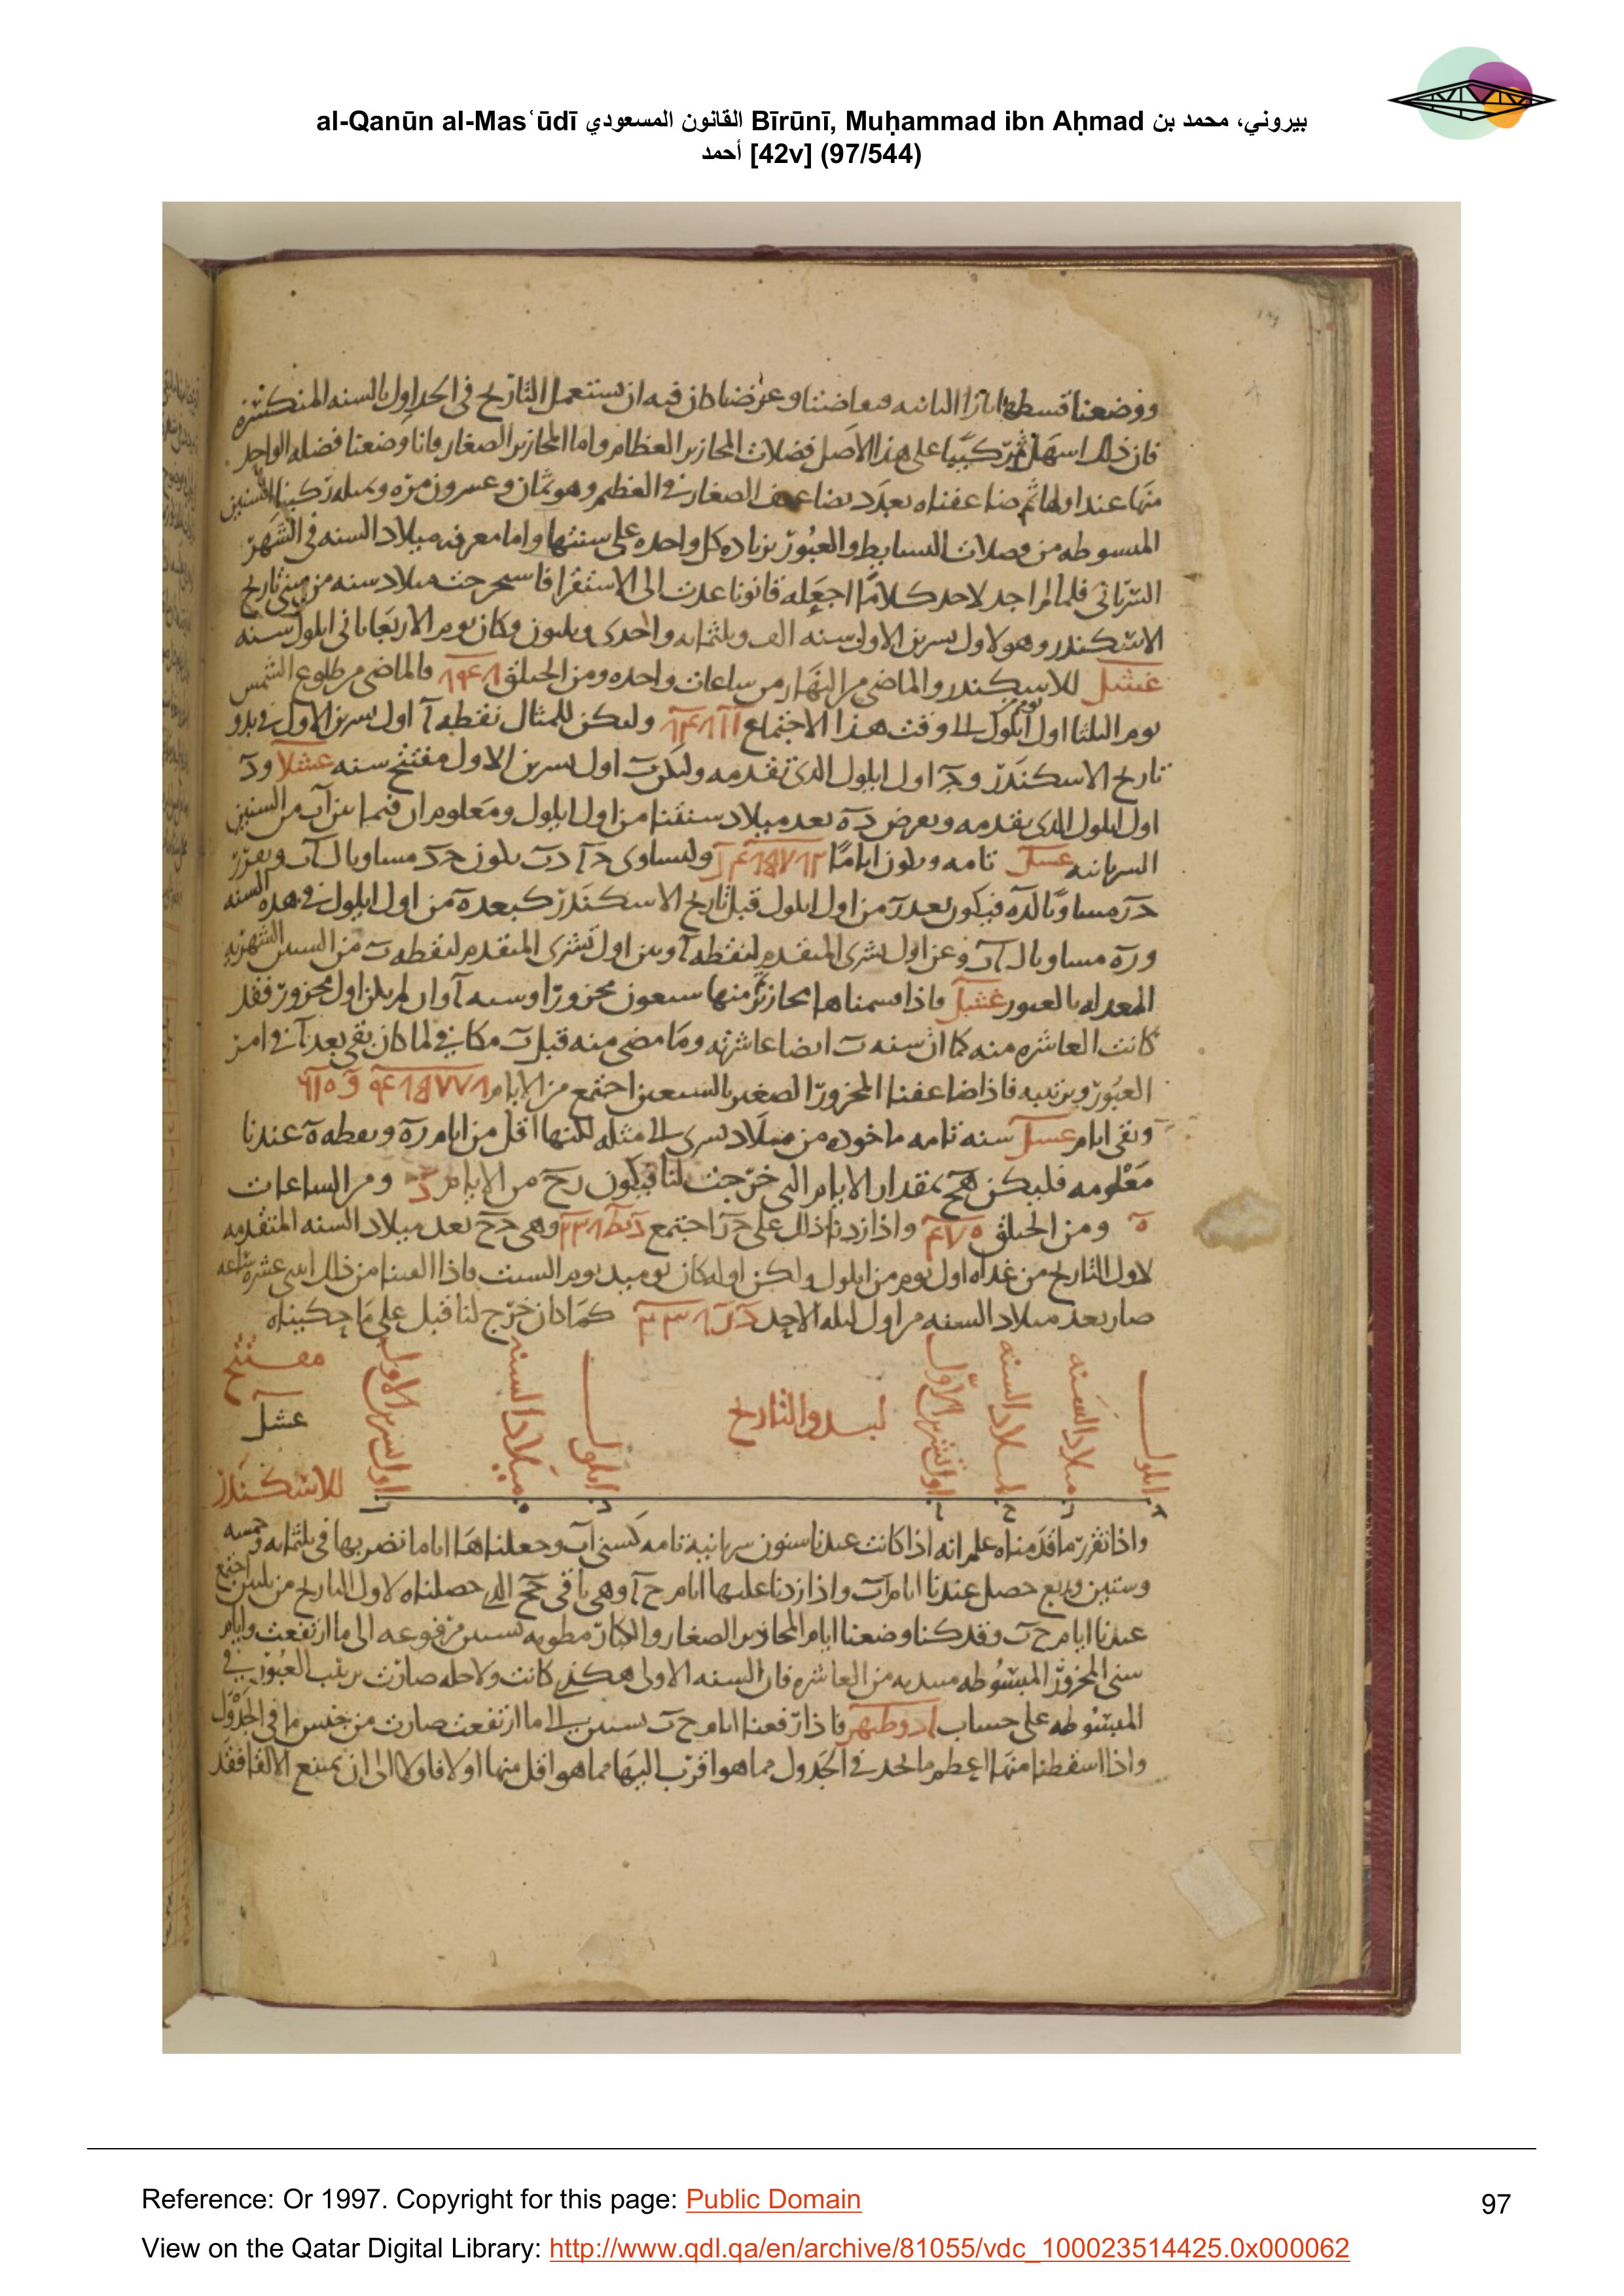 al-Qanūn al-Mas‘ūdī القانون المسعودي Bīrūnī, Muḥammad ibn Aḥmad بيروني، محمد بن
أحمد [42v] (97/544)
ووضعنا قسطها بازا الثانيه
فان ذلك اسهل ثم ركبنا على هذا الاصل فضلات المحازير العظام واما المحازير الصغار فانا وضعنا فضله الواحد
منها عند اولها ثم ضاعفناه بعدد تضاعيف الصغار في العظيم وهو ثمان وعسرون مره وبمثله ركبنا السنين
المبسوطه من فضلات البسايط والعبور بزياده كل واحده على سنتها واما معرفه ميلاد السنه في الشهر
السرياني فلما لم اجد لاحد كلاما اجعله قانونا عدت الى الاستقرا فاسحرجت ميلاد سنه من سني تاريخ
الاسكندر وهو لاول سرين الاول سنه الف وثلثمايه واحدى وثلثون وكان يوم الاربعا ثاني ايلول سنه
غشل للاسكندر والماضي من النهار من ساعات واحده ومن الحلق والماضي من طلوع الشمس
يوم الثلثا اول ايلول الى وقت هذا الاجتماع وليكن للمثال نقطه آ اول سرين الاول في بدو
تاريخ الاسكندر و اول ايلول الذي تقدمه وليكن ب اول سرين الاول مفتتح سنه غشلا ود
اول ايلول الذي يقدمه وبعرض ده بعد ميلاد سنتنا من اول ايلول ومعلوم ان فيما بين آب من السنين
السريانيه غشل تامه ويكون اياما وليساوى
فيكون بعد من اول ايلول قبل تاريخ الاسكندر كبعد ده من اول ايلول في هذه السنه
وره مساو بال آب وعن اول تشرى المتقدم لنقطه آ وبين اول تشرى المتقدم لنقطه ب من السنين الشهريه
المعدله بالعبور غشل فاذا قسمناها بمحازير منها سبعون محزورا وسنه آ وان لم يكن اول محزور فقد
كانت العاشره منه كما ان سنه ب ايضا عاشرته وما مضى منه قبل ب مكافي لما كان بقي بعد آ في امر
العبور وترتيبه فاذا ضاعفنا المحزور الصغير بالسبعين اجتمع من الايام
وبقى ايام غشل سنه تامه ماخوذه من ميلاد تسرى الى مثله لكنها اقل من ايام ره ونقطه ه عندنا
معلومه فليكن هح بمقدار الايام التي خرجت لنا فيكون رح من الايام ومن الساعات
ه ومن الحلق واذا زدنا ذلك على اجتمع وهي دح بعد ميلاد السنه المتقدمه
لاول التاريخ من غداه اول يوم من ايلول ولكن اوله كان يوميد يوم السبت فاذا القينا من ذلك اثنى عشره ساعه
صار بعد ميلاد السنه من اول ليله الاحد كما كان خرج لنا قبل على ما حكيناه
ايلول
ميلاد السنه
ميلاد السنه
اول تشرين الاول
لبدو التاريخ
ايلول
ميلاد السنه
اول تشرين الاول
مفتتح
غشل
للاسكندر
واذا تقرر ما قدمناه علم انه اذا كانت عندنا سنون سريانية تامه كسني آب وجعلناها اياما نضربها في ثلثمايه وخمسه
وستين وربع حصل عندنا ايام آب واذا زدنا عليها ايام ح آ وهي باقي حصلناه لاول التاريخ من ثلثين اجتمع
عندنا ايام ح ب وقد كنا وضعنا ايام المحازير الصغار والكبار مطويه بستين مرفوعه الى ما ارتفعت وايام
سنى المحزور المبسوطه مبتديه من العاشره فان السنه الاولى هكذى كانت ولاجله صارت ترتيب العبور في
المبسوطه على حساب ادوطبهر فاذا رفعنا ايام ح ب بستين الى ما ارتفعت صارت من جنس ما في الجدول
واذا اسقطنا منها اعظم ما نجد في الجدول مما هو اقرب اليها مما هو اقل منها اولا فاولا الى ان يمتنع الالقا فقد
Reference: Or 1997. Copyright for this page: Public Domain
97
View on the Qatar Digital Library: http://www.qdl.qa/en/archive/81055/vdc_100023514425.0x000062